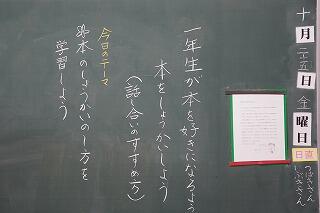 十月二十五日金曜日
日直
つばささん
いぶきさん
一年生が本を好きになるよう
本をしょうかいしよう
(話し合いのすすめ方)
今日のテーマ
本のしょうかいのし方を
学習しよう